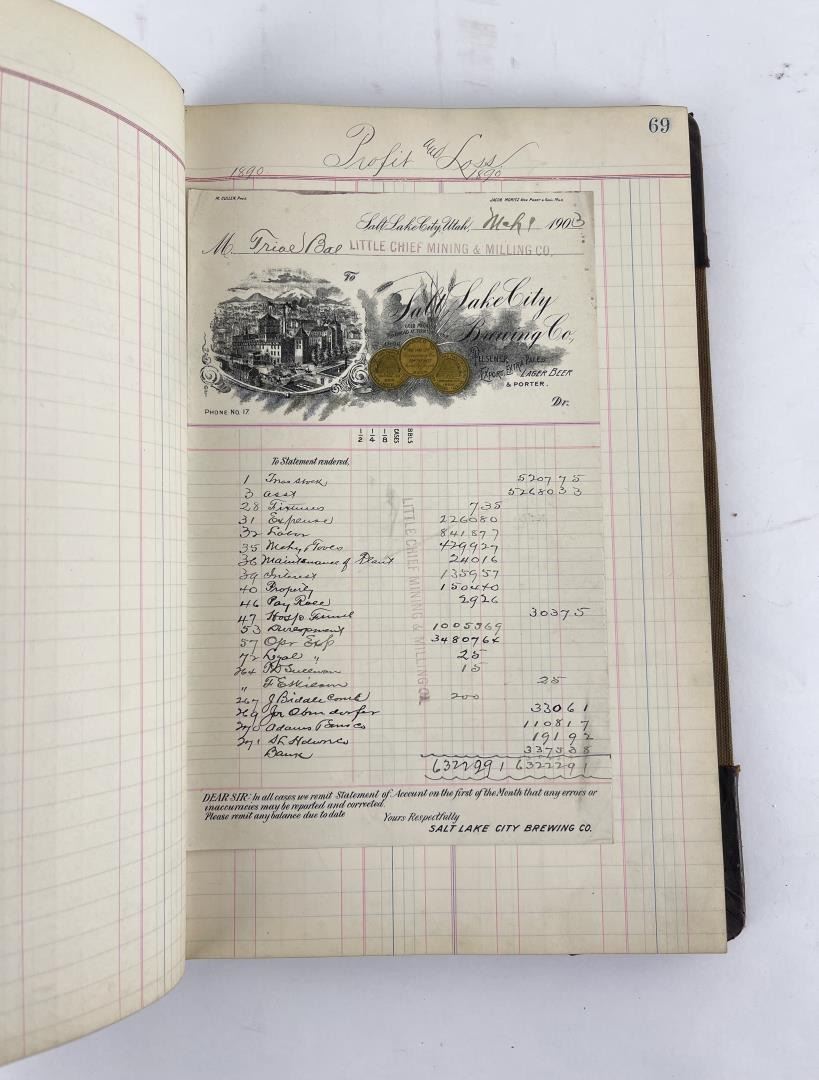 69
Profit and Loss
1890 1890
M. CULLEN, PRES. JACOB MORITZ VICE PREST & GENL MGR.
Salt Lake City, Utah, Mch 1 1903
M. Trial Bal LITTLE CHIEF MINING & MILLING CO.
To
Salt Lake City
Brewing Co,
PILSENER
EXPORT, EXTRA PALE
LAGER BEER
& PORTER.
PHONE NO. 17. Dr.
1/2 1/4 1/8 CASES BBLS
To Statement rendered,
1 Treas Stock 520775
3 asst 5268033
28 Fixtures 735
31 Expense 226080
32 Labor 841877
35 Mchy & Tools 429927
36 Maintenance of Plant 24016
39 Interest 135957
40 Property 150440
46 Pay Roll 2926
47 Hosp Fund 30375
53 Development 1005569
57 Opr Exp 3480764
72 Legal " 25
264 Sullivan 15
" 25
267 J Biddlecomb 200
269 Jos Oberndorfer 33061
270 Adams 110817
271 S L Hdwr Co 19192
Bank 337538
6322291 6322291
LITTLE CHIEF MINING & MILLING CO.
DEAR SIR:- In all cases we remit Statement of Account on the first of the Month that any errors or
inaccuracies may be reported and corrected.
Please remit any balance due to date Yours Respectfully
SALT LAKE CITY BREWING CO.